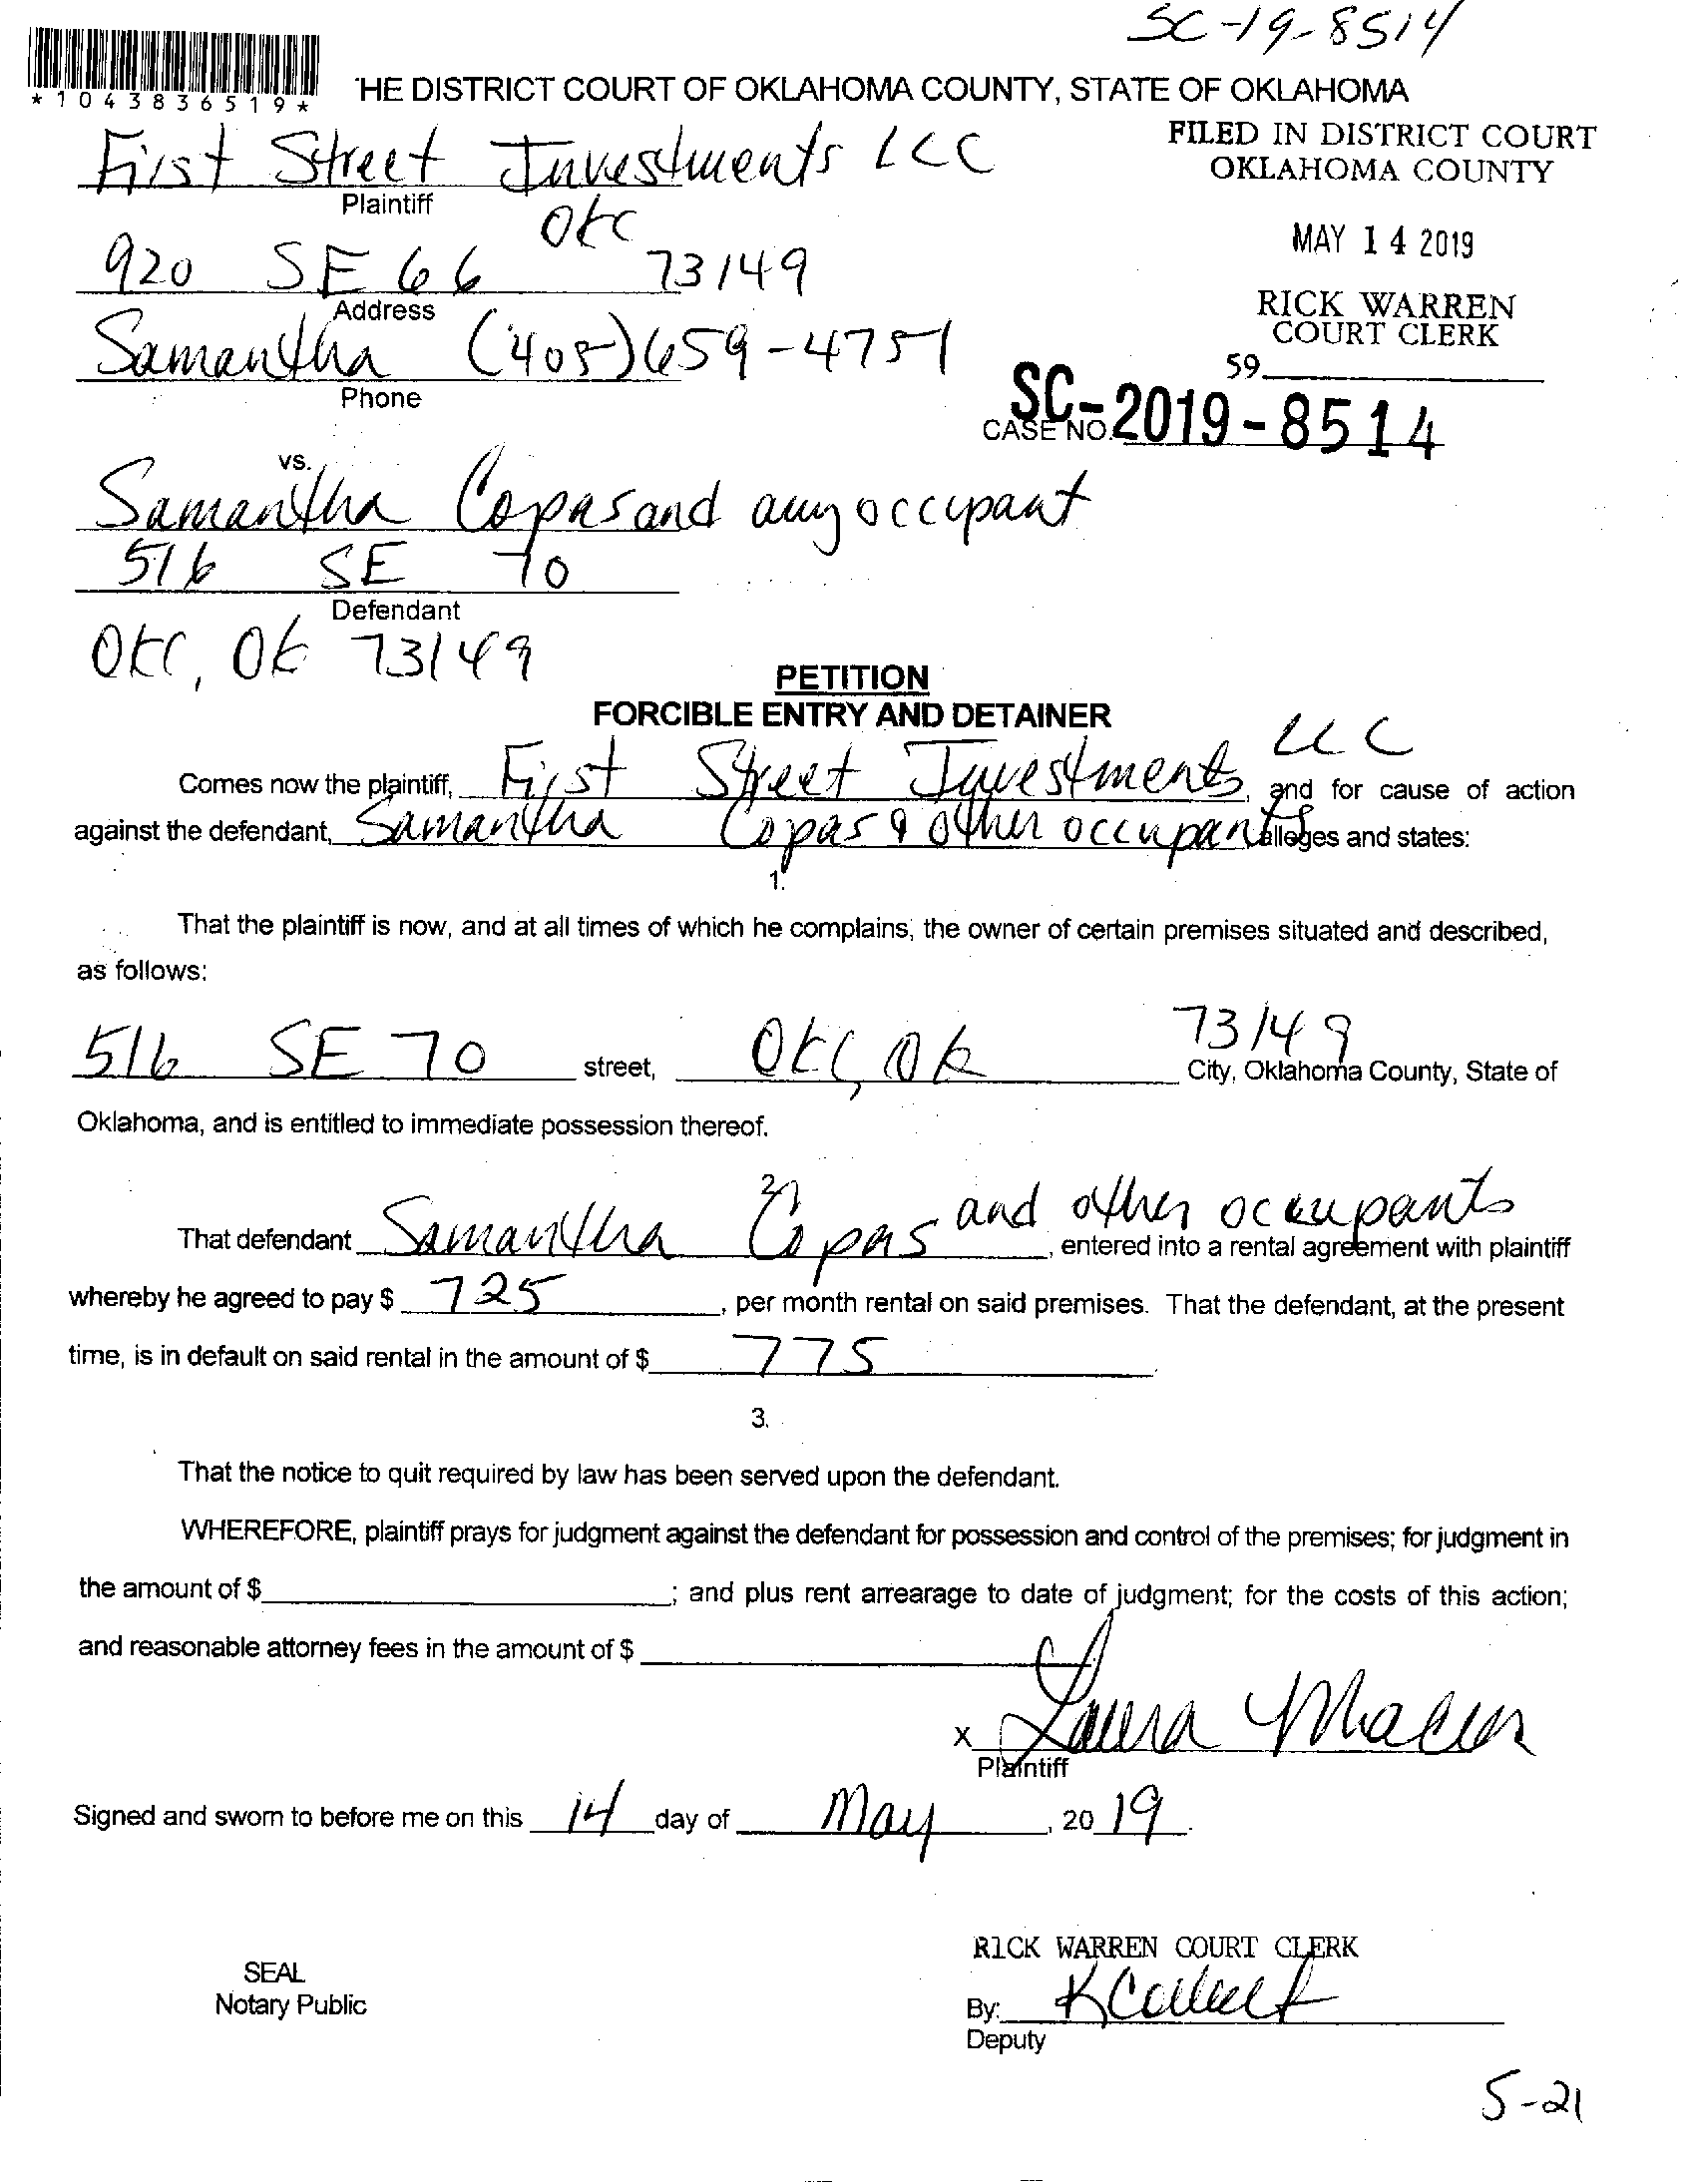 SC-19-8514
*1043836519*
HE DISTRICT COURT OF OKLAHOMA COUNTY, STATE OF OKLAHOMA
FILED IN DISTRICT COURT
OKLAHOMA COUNTY
First Street Investments LLC
Plaintiff
OKC
920 SE 66 73149
Address
MAY 14 2019
RICK WARREN
COURT CLERK
Samantha (405)659-4751
Phone
59
SC-2019-8514
CASE NO.
vs.
Samantha Copas and any occupant
516 SE 70
Defendant
OKC, OK 73149
PETITION
FORCIBLE ENTRY AND DETAINER
Comes now the plaintiff, First Street Investments LLC, and for cause of action
against the defendant, Samantha Copas & other occupants alleges and states:
1.
That the plaintiff is now, and at all times of which he complains, the owner of certain premises situated and described,
as follows:
516 SE 70 street, OKC, OK 73149 City, Oklahoma County, State of
Oklahoma, and is entitled to immediate possession thereof.
2.
That defendant Samantha Copas and other occupants, entered into a rental agreement with plaintiff
whereby he agreed to pay $ 725, per month rental on said premises. That the defendant, at the present
time, is in default on said rental in the amount of $ 775.
3.
That the notice to quit required by law has been served upon the defendant.
WHEREFORE, plaintiff prays for judgment against the defendant for possession and control of the premises; for judgment in
the amount of $ ; and plus rent arrearage to date of judgment; for the costs of this action;
and reasonable attorney fees in the amount of $
x Laura
Plaintiff
Signed and sworn to before me on this 14 day of May, 20 19.
RICK WARREN COURT CLERK
SEAL
Notary Public
By:
Deputy
5-21